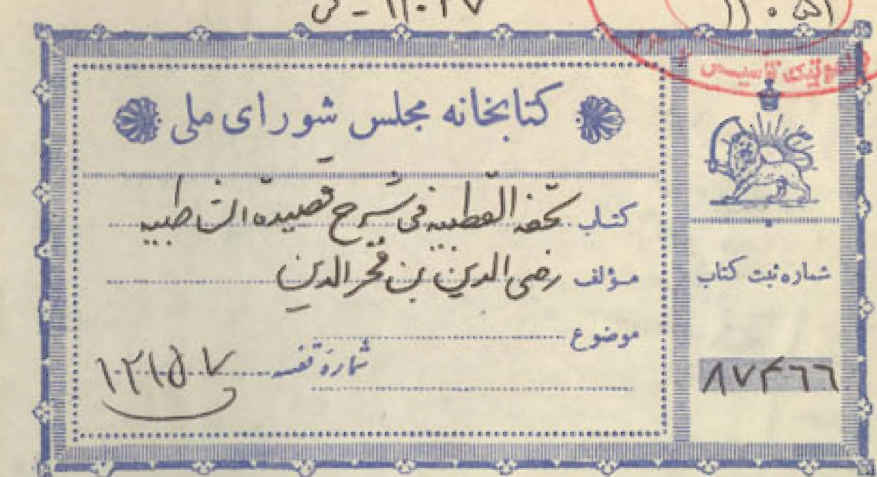 ۱۱۰۵۱
کتابخانه مجلس شورای ملی
کتاب تحفه القطبیه فی شرح قصیدة الشاطبیه
مؤلف رضی الدین بن فخر الدین
موضوع
شماره قفسه ۱۲۱۵۷
شماره ثبت کتاب
۸۷۴۶۶